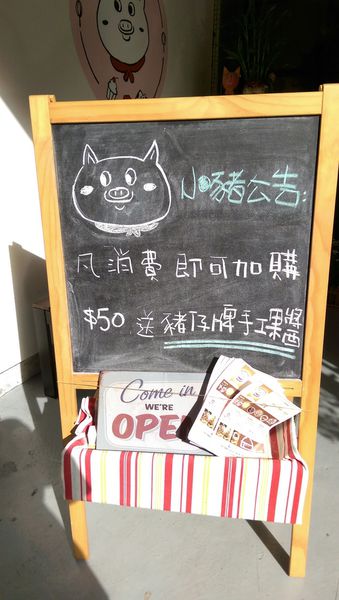 小豬公告:
凡消費即可加購
$50 送豬仔牌手工果醬
Come in
WE'RE
OPE